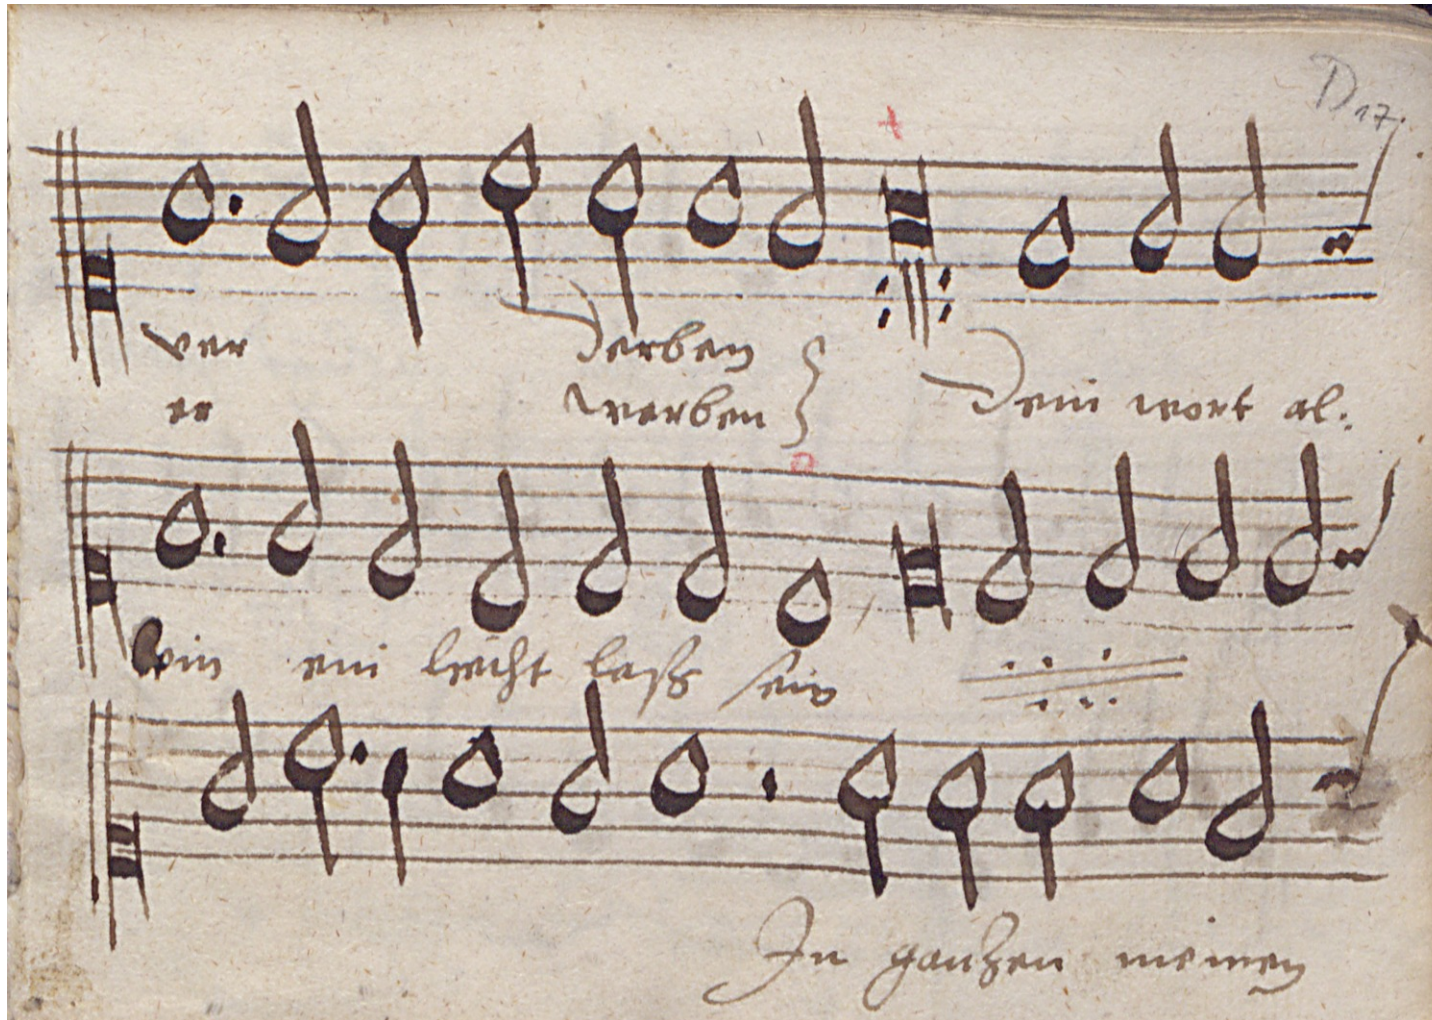 D 17
ver derben
er werben Dein wort al:
lein ein liecht lass sein
In gantzen meinen